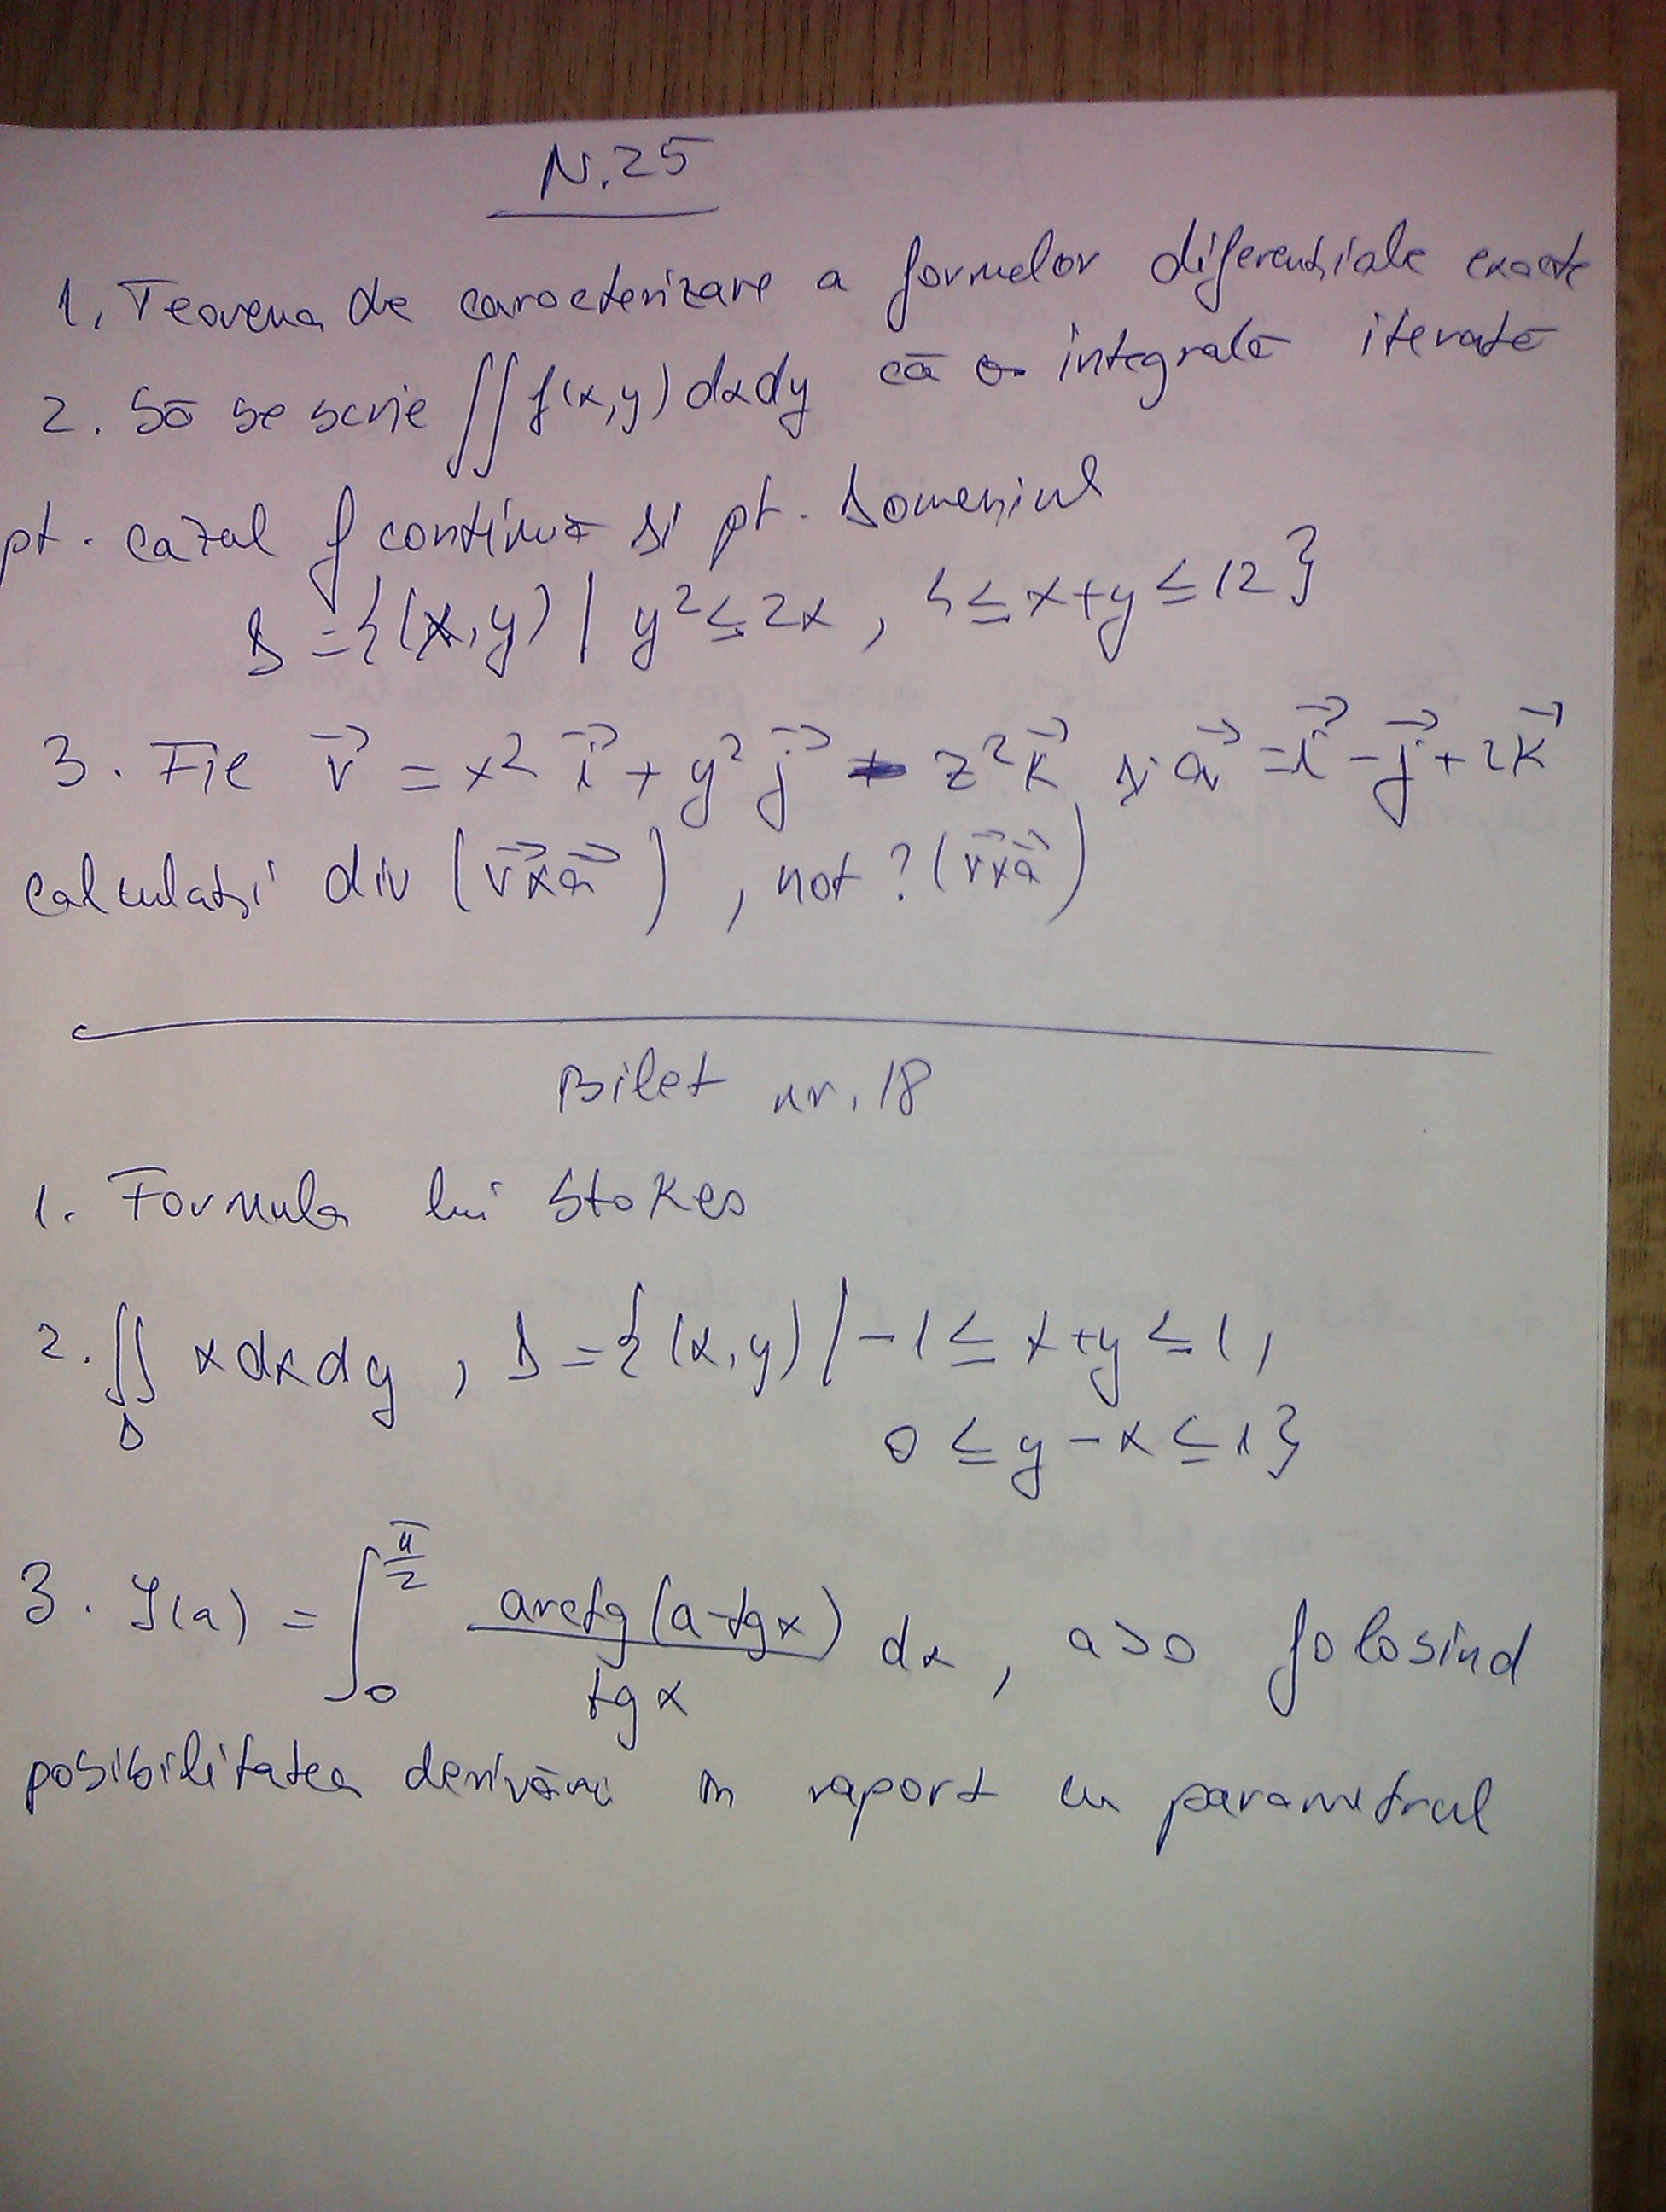 N.25
1. Teorema de caracterizare a formelor diferențiale exacte
2. Să se scrie ∬ f(x,y) dxdy că o integrală iterată
pt. cazul f continuă și pt. Domeniul
D = {(x,y) | y² ≤ 2x, 4 ≤ x+y ≤ 12}
3. Fie v⃗ = x² i⃗ + y² j⃗ - z² k⃗ și a⃗ = i⃗ - j⃗ + 2k⃗
calculați div (v⃗ x a⃗), rot ? (v⃗ x a⃗)
Bilet nr. 18
1. Formula lui Stokes
2. ∬_D x dx dy, D = {(x,y) | -1 ≤ x+y ≤ 1,
0 ≤ y-x ≤ 1}
3. J(a) = ∫₀^(π/2) arctg(a tgx) / tgx dx, a>0 folosind
posibilitatea derivării în raport cu parametrul